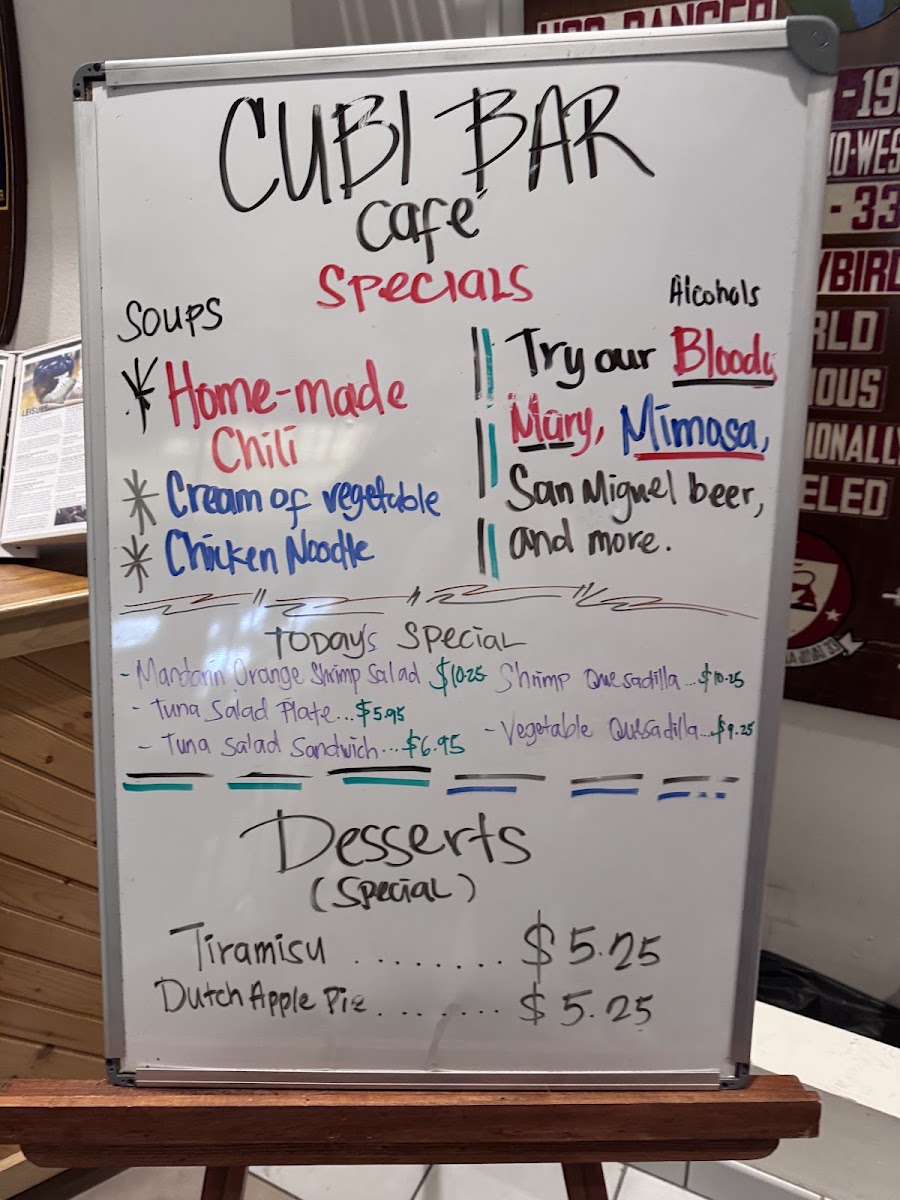 CUBI BAR
Café
SPECIALS
SOUPS
Home-made
Chili
Cream of vegetable
Chicken Noodle
Alcohols
Try our Bloody
Mary, Mimosa,
San Miguel beer,
and more.
TODAY'S SPECIAL
- Mandarin Orange Shrimp Salad $10.25
- Tuna Salad Plate... $5.95
- Tuna Salad Sandwich... $6.95
Shrimp Quesadilla... $10.25
- Vegetable Quesadilla... $9.25
Desserts
(SPECIAL)
Tiramisu ........ $5.25
Dutch Apple Pie ....... $5.25
LEISURE
USS RANGER
-19
IO-WES
- 33
YBIRD
RLD
IOUS
IONALLY
ELED